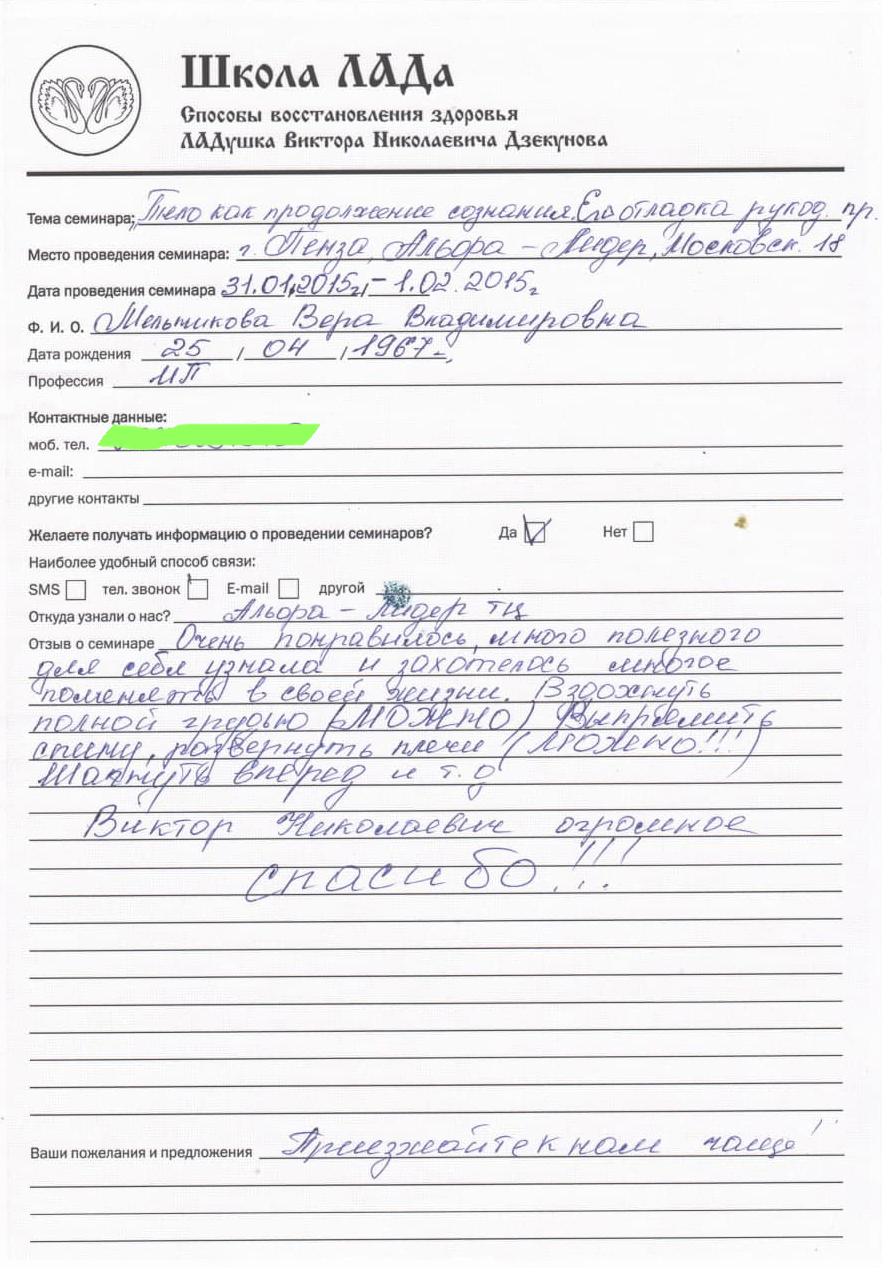 Школа ЛАДа
Способы восстановления здоровья
ЛАДушка Виктора Николаевича Дзекунова
Тема семинара: Тело как продолжение сознания. Его отладка рукод. пр.
Место проведения семинара: г. Пенза, Альфа - Лидер, Московск. 18
Дата проведения семинара 31.01.2015г. - 1.02.2015г
Ф. И. О. Мельникова Вера Владимировна
Дата рождения 25 / 04 / 1967г.
Профессия ИП
Контактные данные:
моб. тел.
e-mail:
другие контакты
Желаете получать информацию о проведении семинаров? Да Нет
Наиболее удобный способ связи:
SMS тел. звонок E-mail другой
Откуда узнали о нас? Альфа - Лидер тц
Отзыв о семинаре Очень понравилось, много полезного
для себя узнала и захотелось многое
поменять в своей жизни. Вздохнуть
полной грудью (МОЖНО) Выпрямить
спину, развернуть плечи (МОЖНО!!!)
Шагнуть вперед и т.д
Виктор Николаевич огромное
спасибо!!!
Ваши пожелания и предложения Приезжайте к нам чаще!!